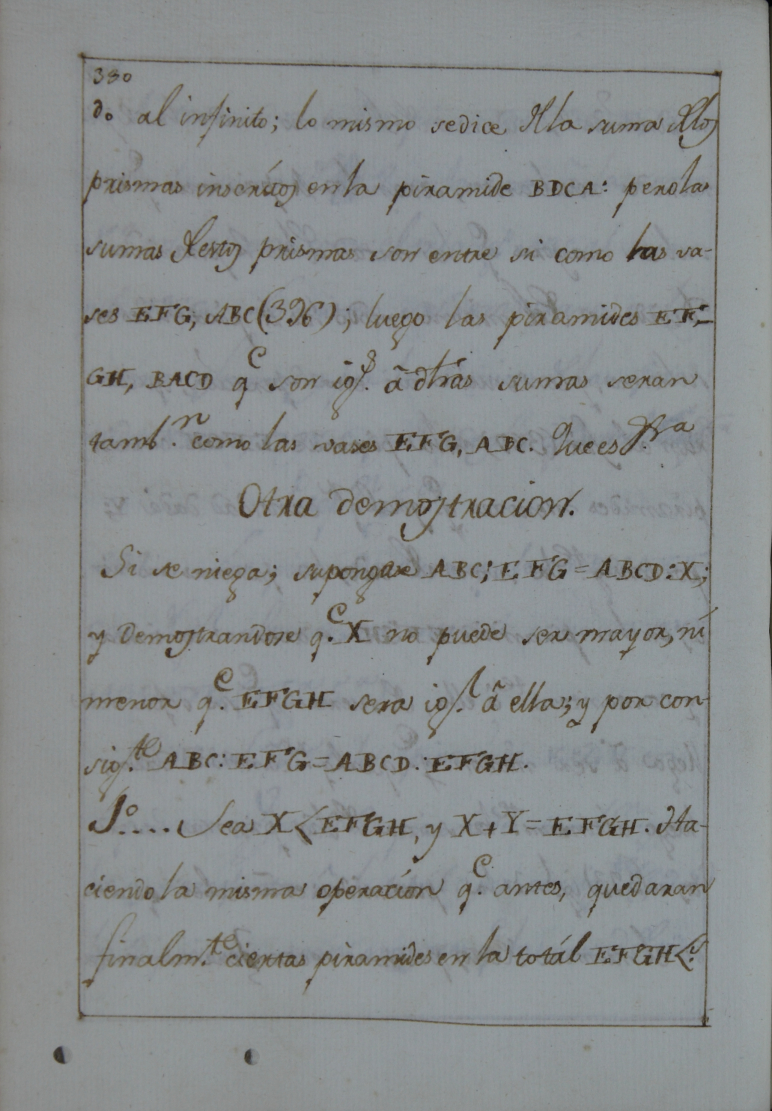 330
do al infinito; lo mismo sedice de la suma de los
prismas inscritos en la piramide BDCA: pero la
sumas de estos prismas son entre si como las va-
ses EFG, ABC (396); luego las piramides EF-
GH, BACD q.e son ig.s â dhas sumas seran
tamb.n como las vases EFG, ABC. Que es
Otra demostracion.
Si se niega; supongase ABC: EFG = ABCD: X;
y Demostrandose q.e X no puede ser mayor, ni
menor q.e EFGH sera ig.l â ella; y por con-
sig.te ABC: EFG = ABCD: EFGH.
1.o.... Sea X < EFGH, y X + Y = EFGH. Ha-
ciendo la misma operacion q.e antes, quedaran
finalm.te ciertas piramides en la totál EFGH <